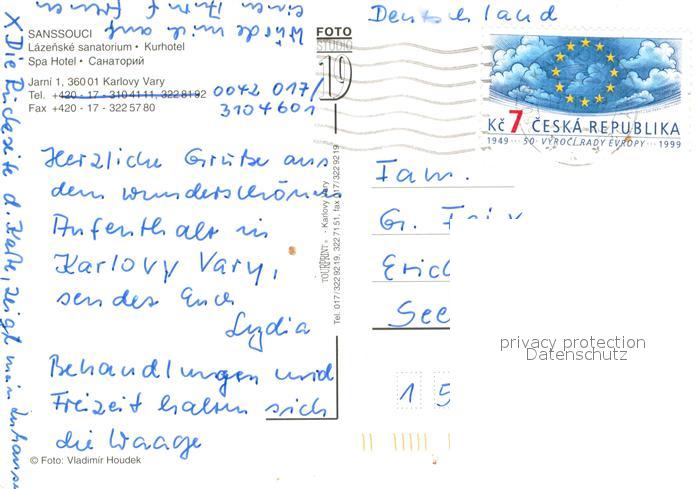 SANSSOUCI
Lázeňské sanatorium • Kurhotel
Spa Hotel • Санаторий
Jarní 1, 360 01 Karlovy Vary
Tel. +420 - 17 - 310 41 11, 322 81 92
0042 017/
3104601
Fax +420 - 17 - 322 57 80
Herzliche Grüße aus
dem wunderschönen
Aufenthalt in
Karlovy Vary,
sendet Euch
Lydia
Behandlungen und
Freizeit halten sich
die Waage
© Foto: Vladimír Houdek
X Die Rückseite d. Karte, zeigt mein Zuhause
Würde mich auf
einen Anruf freuen
FOTO
STUDIO
19
TOURPRINT® • Karlovy Vary
Tel. 017/322 92 19, 322 71 51, fax 017/322 92 19
Deutschland
Kč 7 ČESKÁ REPUBLIKA
1949 ... 50. VÝROČÍ RADY EVROPY ... 1999
Fam.
Gr.
Eric
See
1 5
privacy protection
Datenschutz